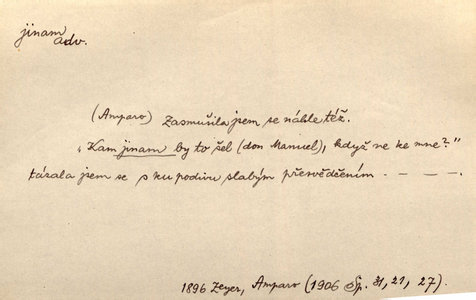 jinam
adv.
(Amparo) Zasmušila jsem se náhle též.
"Kam jinam by to šel (don Manuel), když ne ke mne?"
tázala jsem se s ku podivu slabým přesvědčením - — - — .
1896 Zeyer, Amparo (1906 Sp. 31, 21, 27).